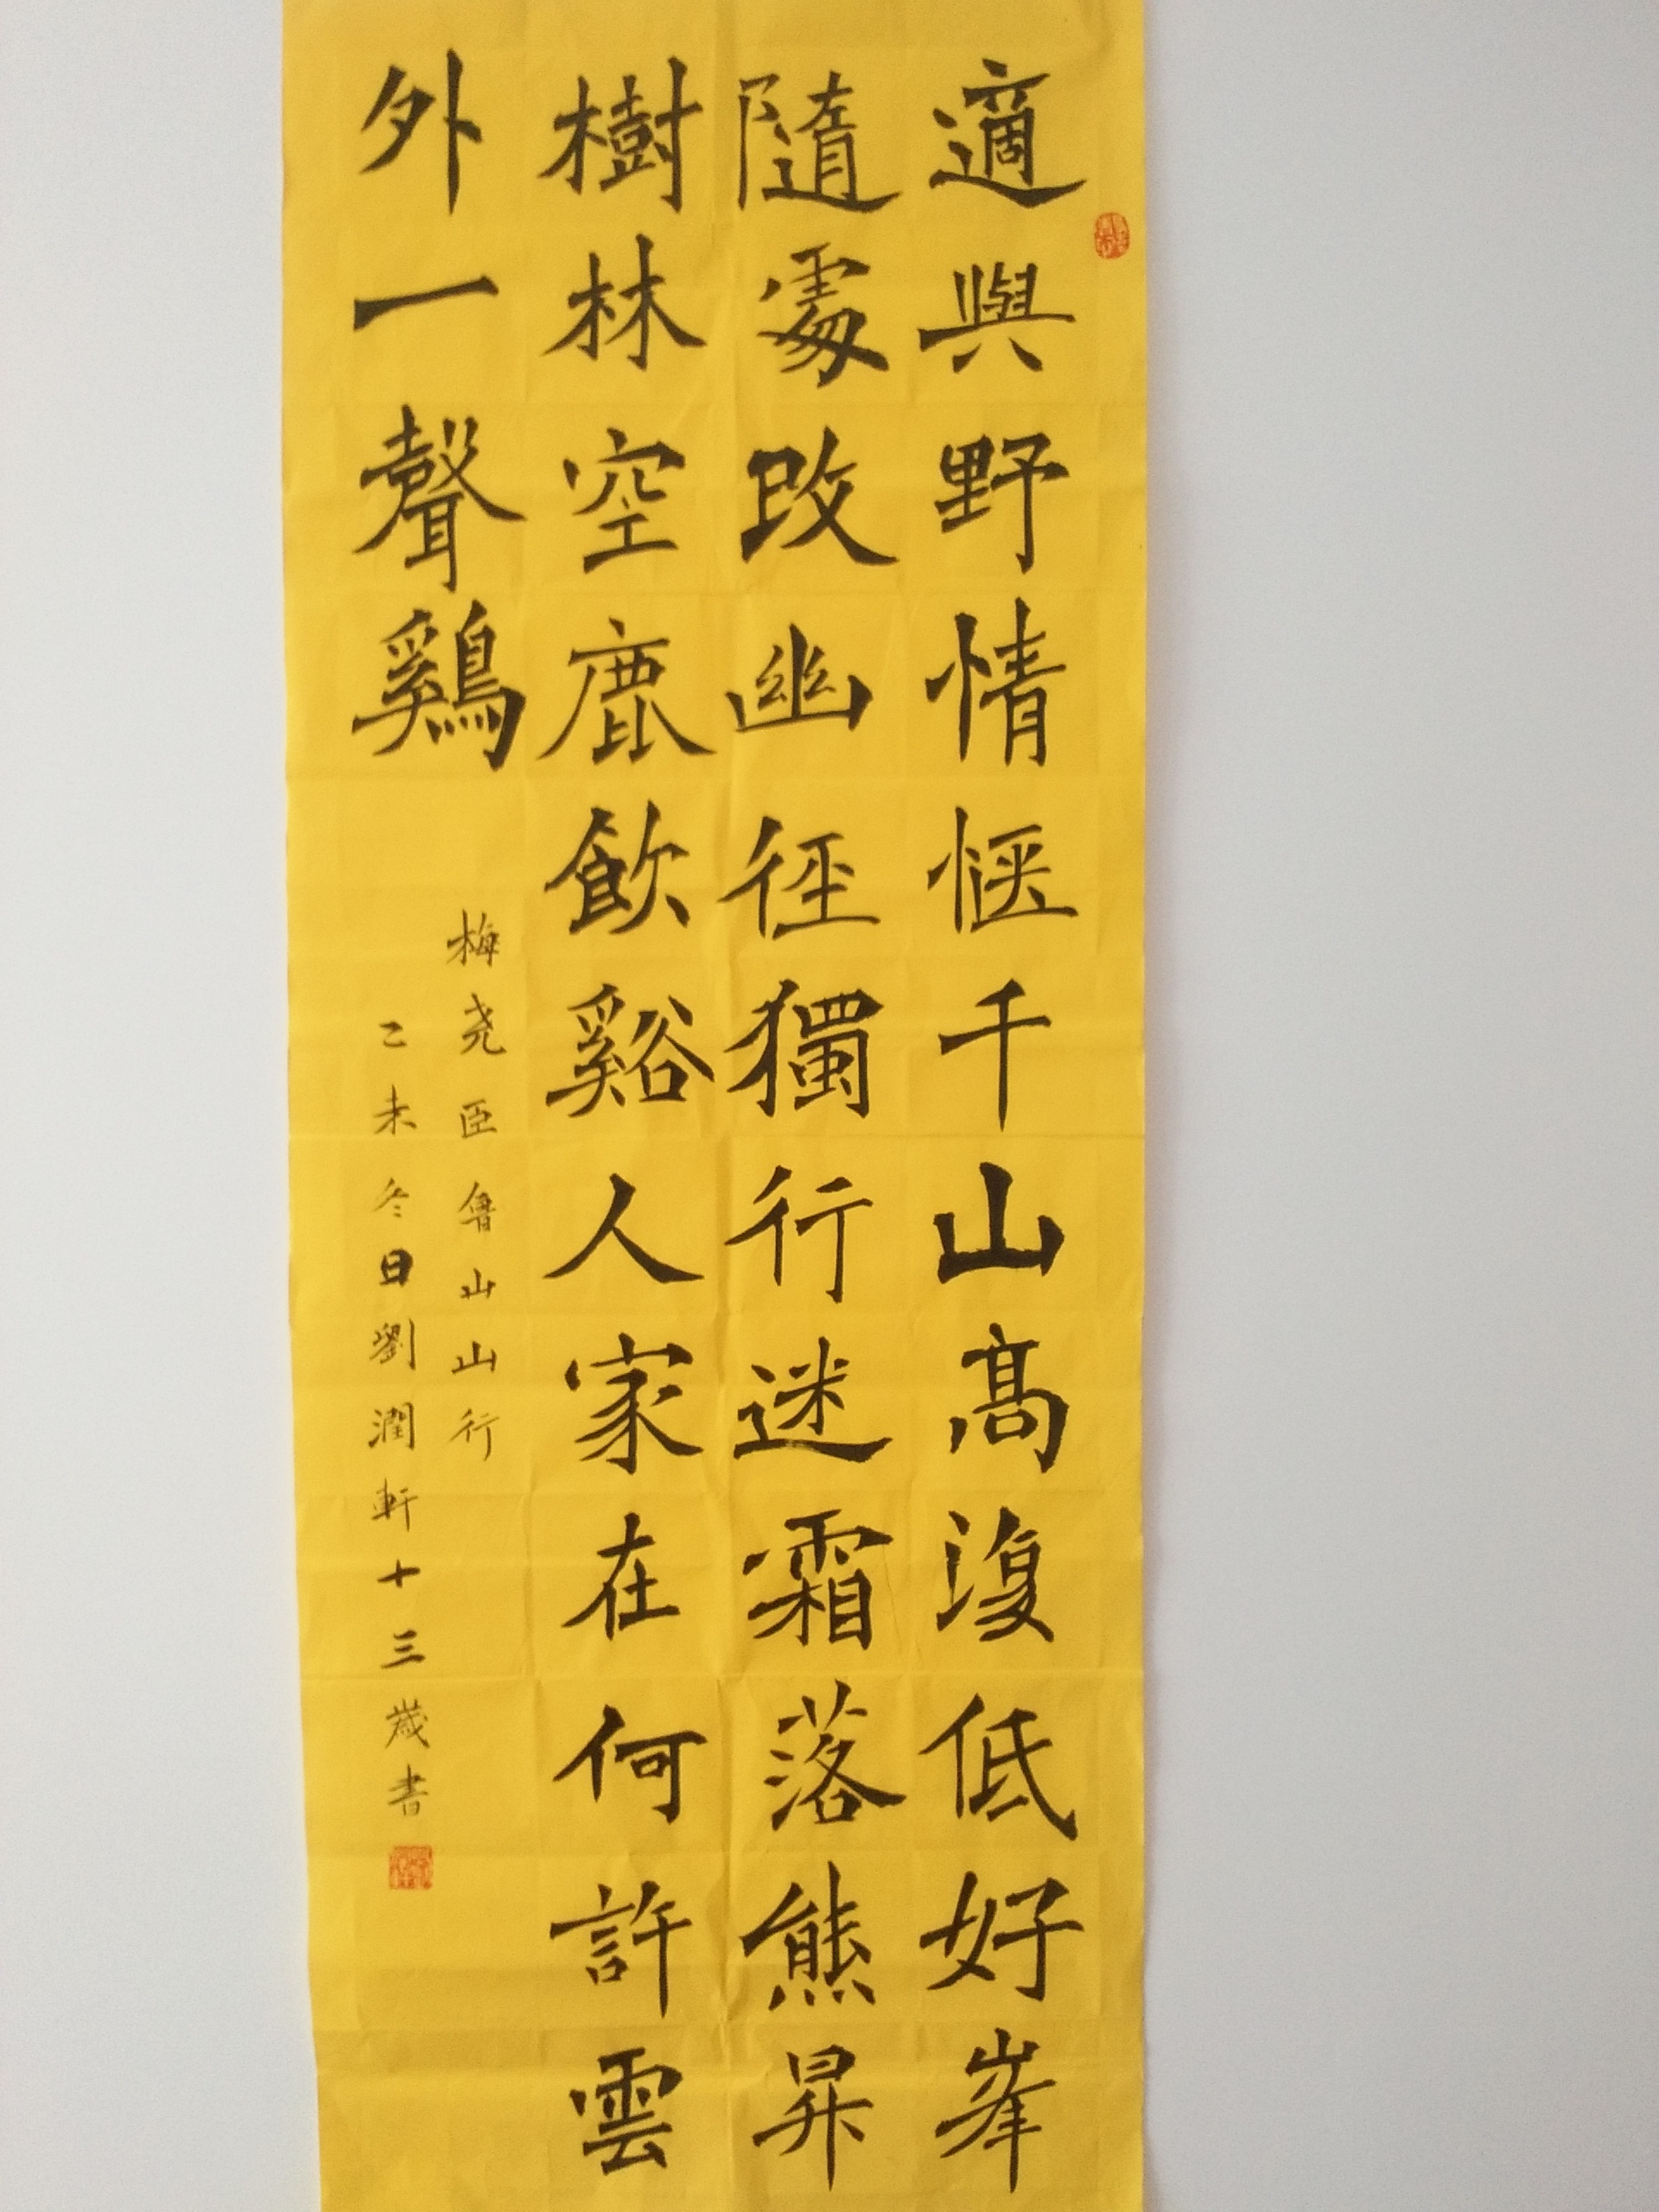 適與野情愜千山高復低好峯
隨處改幽徑獨行迷霜落熊昇
樹林空鹿飲谿人家在何許雲
外一聲鷄
梅尧臣魯山山行
乙未冬日劉潤軒十三歲書